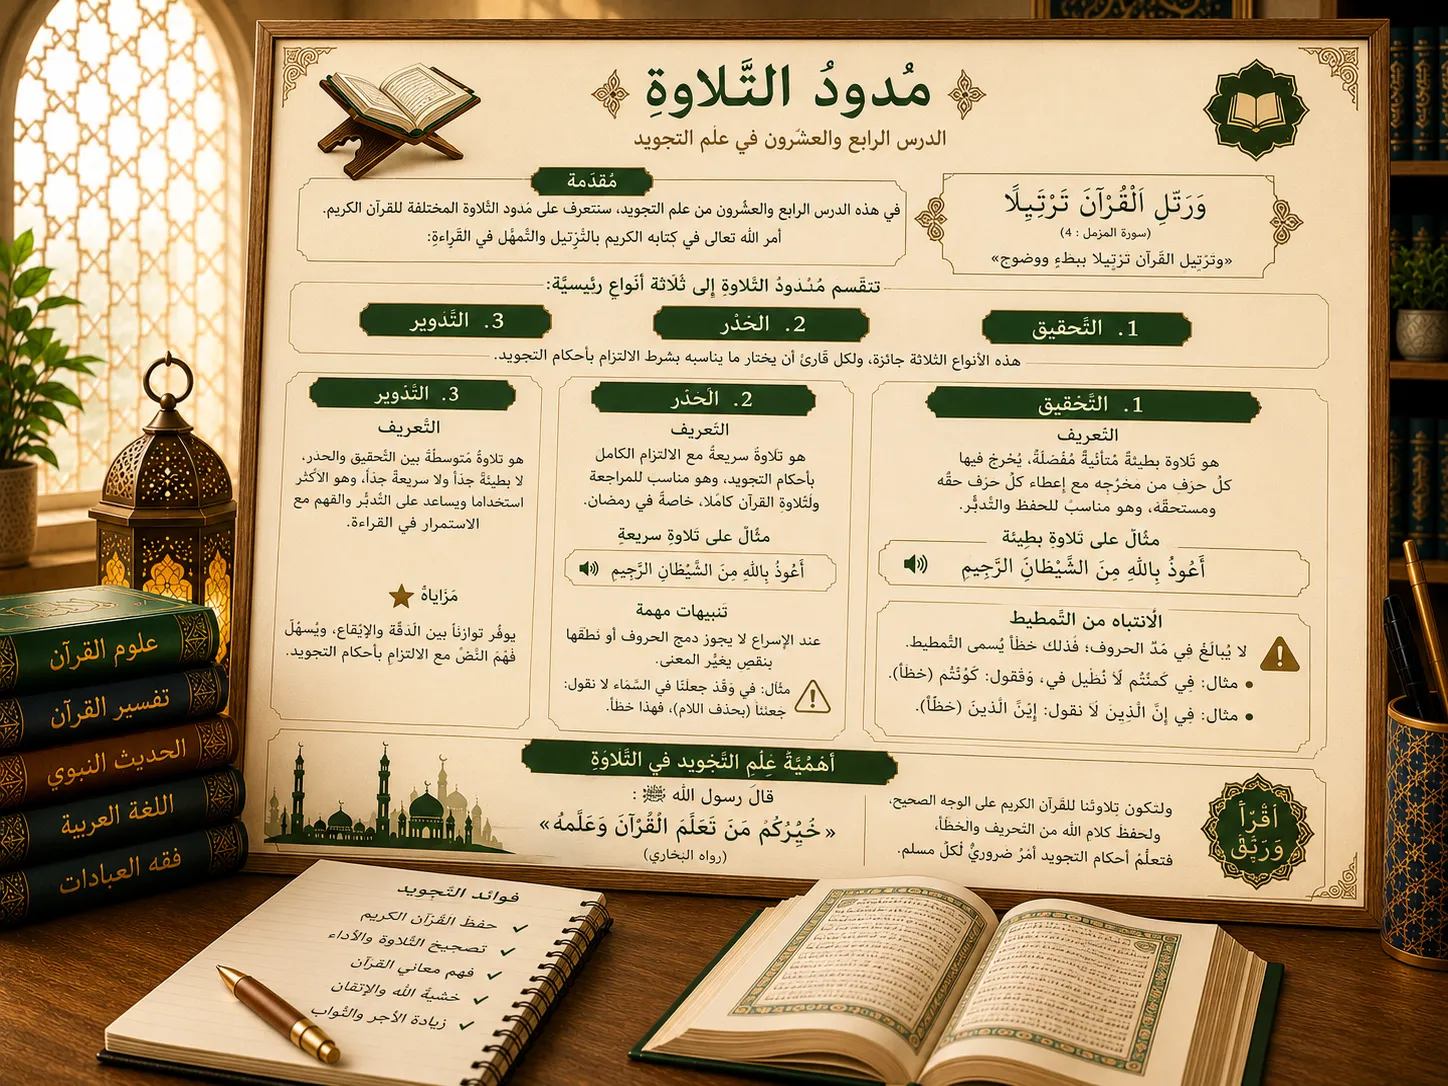 مُدودُ التَّلاوةِ
الدرس الرابع والعشرون في علم التجويد
مُقدَمة
في هذه الدرس الرابع والعشرون من علم التجويد، سنتعرف على مَدود التَّلاوة المختلفة للقرآن الكريم.
أمر الله تعالى في كِتابه الكريم بالتَّرتِيل والتَّمهُّل في القَراءةِ:
وَرَتّلِ اَلْقُرْآنَ تَرْتِيلًا
(سورة المزمل : 4)
«وترْتِيل القَرآن ترْتِيلا ببطْءٍ ووضوج»
تتقَسم مُنُدودُ التَّلاوةِ إلى ثُلَاثة أنْواعِ رئِيسيَّة:
1. التَّحقيق
2. الحَدْر
3. التَّدْوير
هذه الأنواع الثلاثة جائزة، ولكل قَارئ أن يختار ما يناسبه بشرط الالتزام بأحكام التجويد.
1. التَّحْقيق
التْعريف
هو تَلاوة بطيئةً مُتأنّيةً مُفْصَلةً، يُخْرجُ فيها
كلْ حرَفٍ من مَخْرَجِه مع إعطاء كلْ حرَف حقَّه
ومستحقّهَ، وهو مناسبْ للحفظ والتَّدبُّر.
مثْالْ على تَلاوةِ بطِيئة
أَعْوذُ بِاللّهِ مِنَ الشَّيْطَانِ الرَّجِيمِ
الْانتباه من التَّمطيط
لا يُبالَغْ في مَدْ الحروف؛ فْذلك خطأْ يُسمى التَّمطيط.
• مثال: فِي كَمنْتُم لَا نُطَيل في، وَقْقول: كَوُنْتُم (خطأ).
• مثال: فِي إنَّ الَّذِينَ لَا نقول: إيْنَّ الَّذينَ (خطْأ).
2. الَحَدْر
التْعريف
هو تلَاوةُ سريعةً مع الالتزام الكاملَ
بأحكام التجويد، وهو مناسب للمراجعة
ولتَلاوةِ القرآن كامْلا، خاصةً في رمضان.
مثْالْ على تَلاوةِ سريعةِ
أَعْوذُ بِاللّهِ مِنَ الشَّيْطَانِ الرَّجِيمِ
تَنبيهات مهمة
عند الإسراع لا يجوز دمج الحروف أو نَطقها
بنقصٍ يغيُر المعنى.
مثْال: في وَقَدْ جعلَنْا في السَّماء لا نقول:
جَعنْنْا (بحذف اللام)، فهذا خطأ.
3. التَّدْوير
التَّعريف
هو تلاوةُ مَتوسطَةْ بين التَّحقيق والحدر،
لا بطيئةً جدْاً ولا سريعةً جدْاً، وهو الأكثر
استخداما ويساعد على التَّدبُّر والفهم مع
الاستمرار في القراءة.
مَزَاياهُ
يوفُر توازنْاً بين الَدقَّة والإيْقاع، ويُسهّلُ
فَهْمَ النَّصْ مع الالتزامِ بأحكام التجويد.
أهَمُيَّةُ عِلْمِ التَّجْويد في التَّلَاوَةِ
قالَ رسول الله ﷺ :
« خُيْرُكُمْ مَنَ تَعَلَّمَ الُقُرْآنَ وَعَلَّمهُ»
(رواه البْخاري)
ولتكون تِلاوتُنا للقرآن الكريم على الوجه الصحيح،
ولحفظَ كلَام الله من التَّحريف والخَطأ،
فتعلُّمُ أحكام التجويد أمْرْ ضروريٌّ لكلْ مسلم.
علوم القرآن
تفسير القرآن
الحديث النبوي
اللغة العربية
فقه العبادات
فوائد التَّجويد
حفظَ القَرْآن الكريم
تصجيخ التَّلاوة والأداء
فهم معاني القرآن
خشيةُ الله والإتقان
زيادة الأجر والثْواب